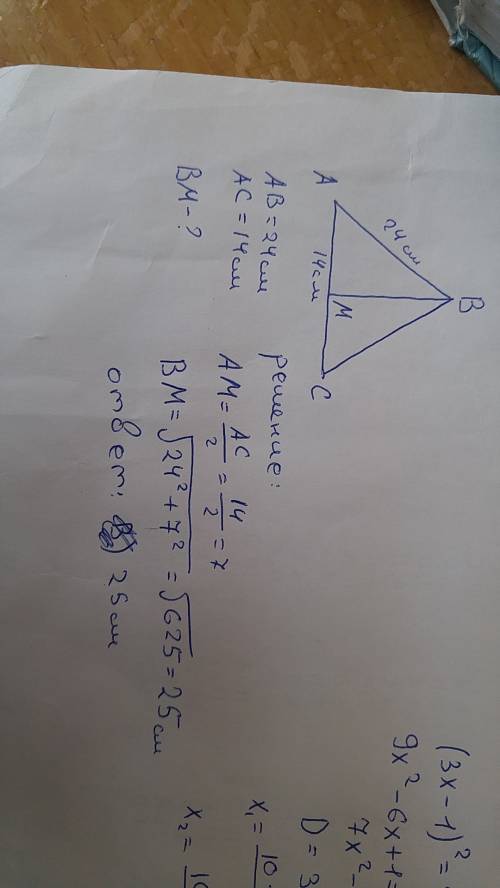 B
24 см
A
14 см
M
C
AB = 24 см
AC = 14 см
BM - ?
решение:
AM = AC/2 = 14/2 = 7
BM = √24² + 7² = √625 = 25 см
ответ: 25 см
(3x - 1)² =
9x² - 6x + 1 =
7x² -
D = 3
x₁ = 10
x₂ = 10